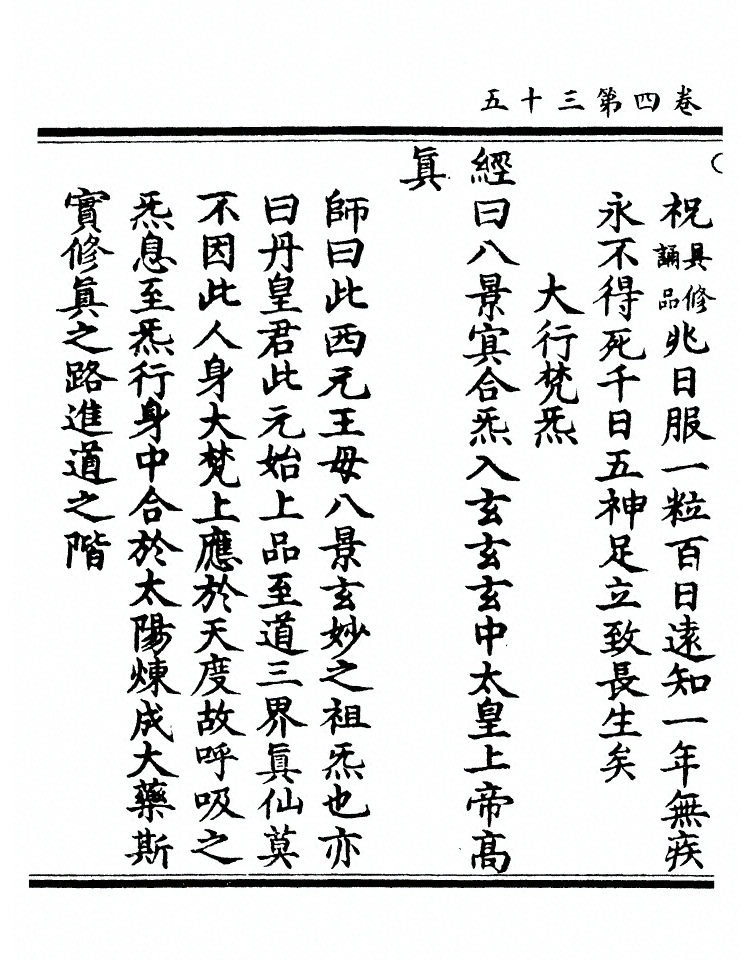 卷四第三十五
祝具修誦品兆日服一粒百日遠知一年無疾
永不得死千日五神足立致長生矣
大行梵炁
經曰八景㝠合炁入玄玄玄中太皇上帝高
眞
師曰此西元王母八景玄妙之祖炁也亦
曰丹皇君此元始上品至道三界眞仙莫
不因此人身大梵上應於天度故呼吸之
炁息至炁行身中合於太陽煉成大藥斯
實修眞之路進道之階